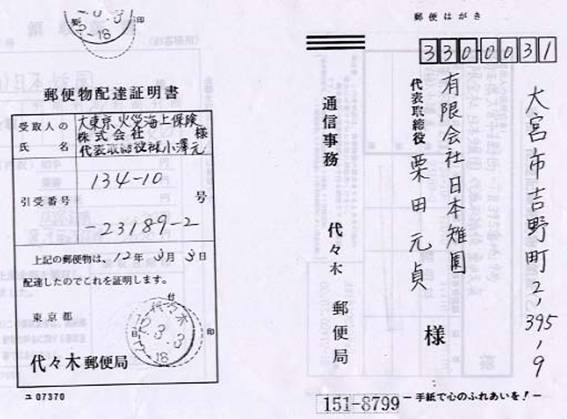 3
18
印
郵便物配達証明書
受取人の氏名
大東京火災海上保険
株式会社
代表取締役 小澤元
様
引受番号
134-10
-23189-2
号
上記の郵便物は、12年3月3日
配達したのでこれを証明します。
東京都
代々木郵便局
代々木
12.3.3
18
印
ユ 07370
郵便はがき
330-0031
大宮市吉野町2,395,9
有限会社日本雉園
代表取締役 栗田元貞
様
通信事務
代々木 郵便局
151-8799
－手紙で心のふれあいを！－